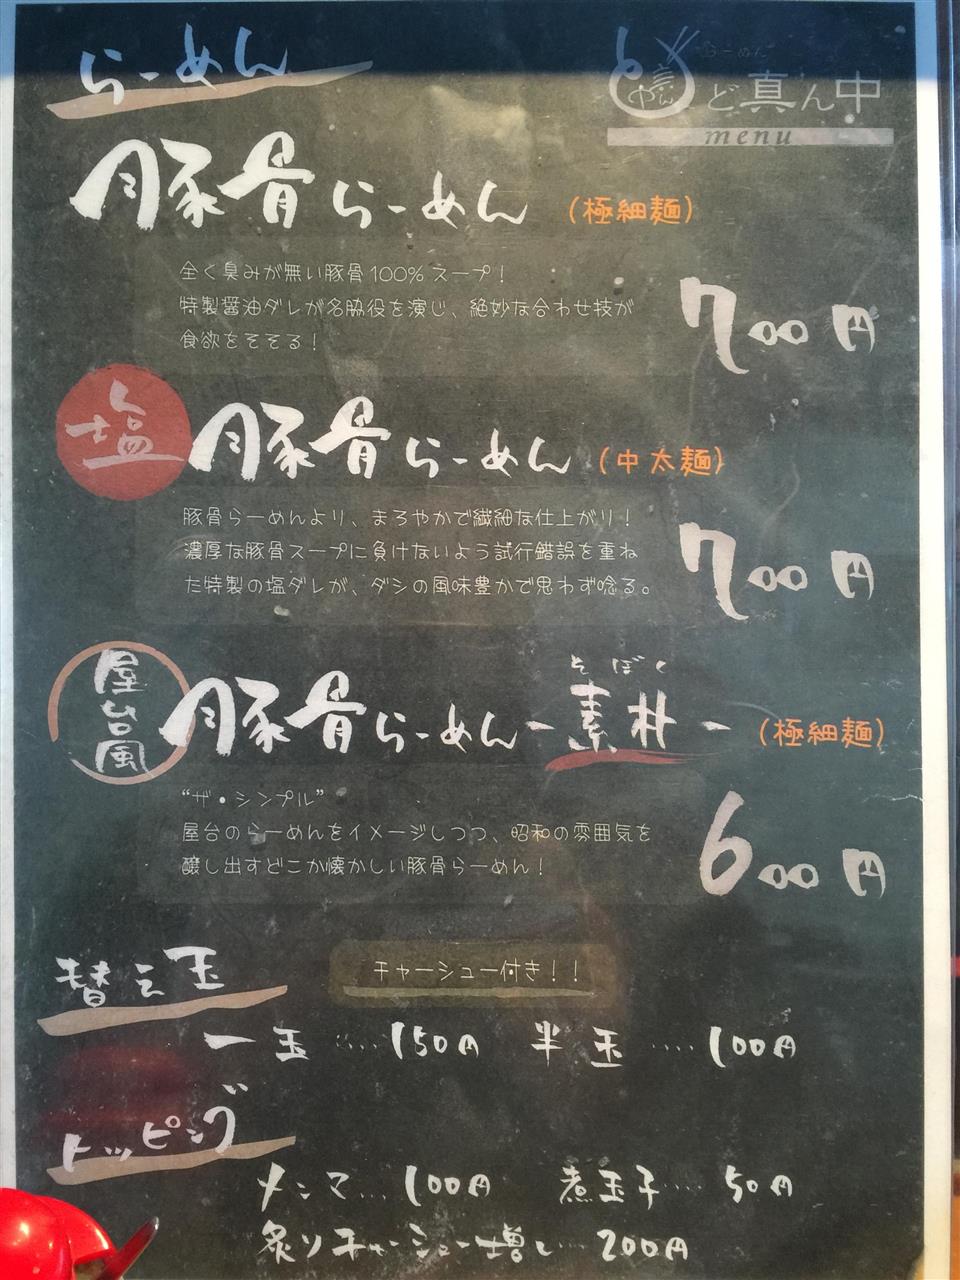 らーめん
らーめん
ど真ん中
menu
豚骨らーめん (極細麺)
全く臭みが無い豚骨100%スープ!
特製醤油ダレが名脇役を演じ、絶妙な合わせ技が
食欲をそそる!
700円
塩豚骨らーめん (中太麺)
豚骨らーめんより、まろやかで繊細な仕上がり!
濃厚な豚骨スープに負けないよう試行錯誤を重ね
た特製の塩ダレが、ダシの風味豊かで思わず唸る。
700円
そぼく
屋台風豚骨らーめん-素朴- (極細麺)
“ザ・シンプル”
屋台のらーめんをイメージしつつ、昭和の雰囲気を
醸し出すどこか懐かしい豚骨らーめん!
600円
替え玉
チャーシュー付き!!
一玉……150円 半玉……100円
トッピング
メンマ…100円 煮玉子……50円
炙りチャーシュー増し…200円